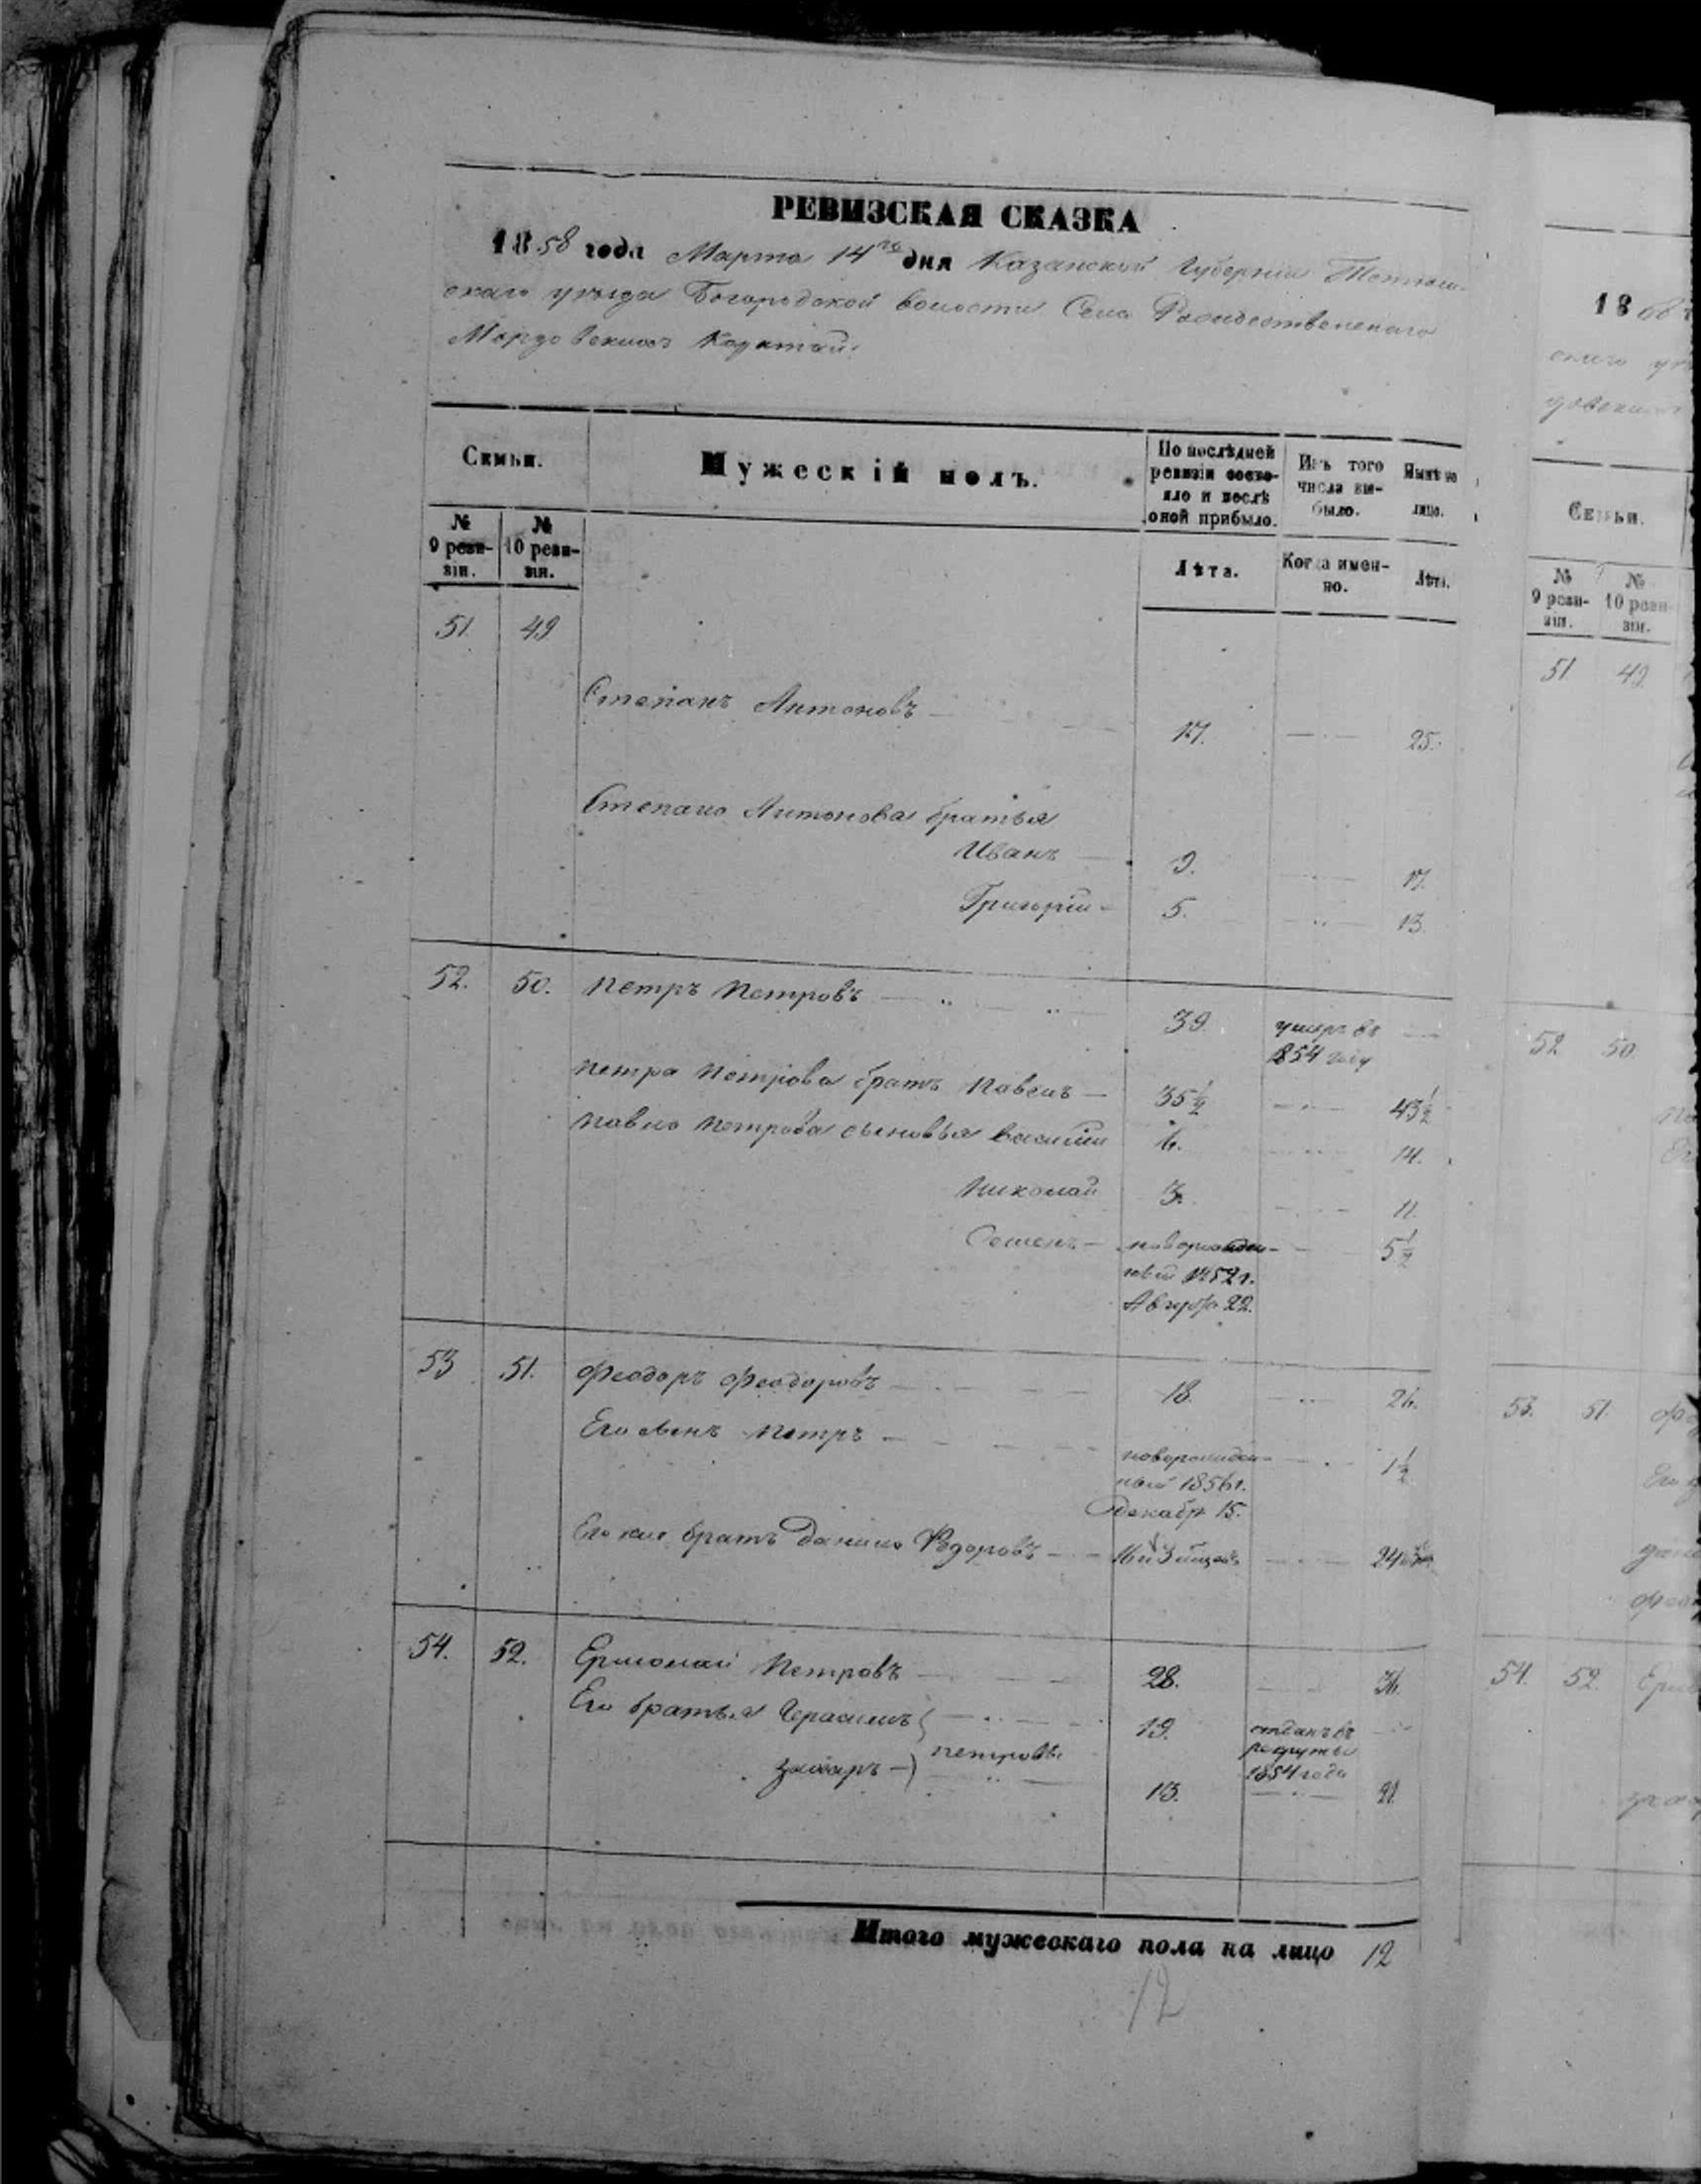 РЕВИЗСКАЯ СКАЗКА
1858 года Марта 14го дня Казанской Губернiи Тетюш-
скаго уѣзда Богородской волости Села Рождественскаго
Мордовскихъ Каратай.
Семьи.
Мужескiй полъ.
По послѣдней ревизiи состо-яло и послѣ оной прибыло.
Изъ того числа вы-было.
Нынѣ на лицо.
№ 9 реви-зiи.
№ 10 реви-зiи.
Лѣта.
Когда имен-но.
Лѣта.
51 49
Степанъ Антоновъ 17. 25.
Степана Антонова братья
Иванъ 9. 17.
Григорiй 5. 13.
52. 50. Петръ Петровъ 39. умеръ въ 1854 году
Петра Петрова братъ Павелъ 35½ 43½
Павла Петрова сыновья Василiй 6. 14.
Николай 3. 11.
Семенъ новорожден-ный 1852 г. Августа 22. 5½
53 51. Феодоръ Феодоровъ 18. 26.
Его сынъ Петръ новорожден-ный 1856 г. Декабр 15. 1½
Его же братъ Данило Федоровъ 16 и 3 24
54. 52. Ермолай Петровъ 28. 36.
Его братья Герасимъ 19. отданъ въ рекруты 1854 года
Петровы
Захаръ 13. 21.
Итого мужескаго пола на лицо 12
12
18
Семьи.
№ 9 реви-зiи.
№ 10 реви-зiи.
51 49
52 50
53. 51.
54. 52.